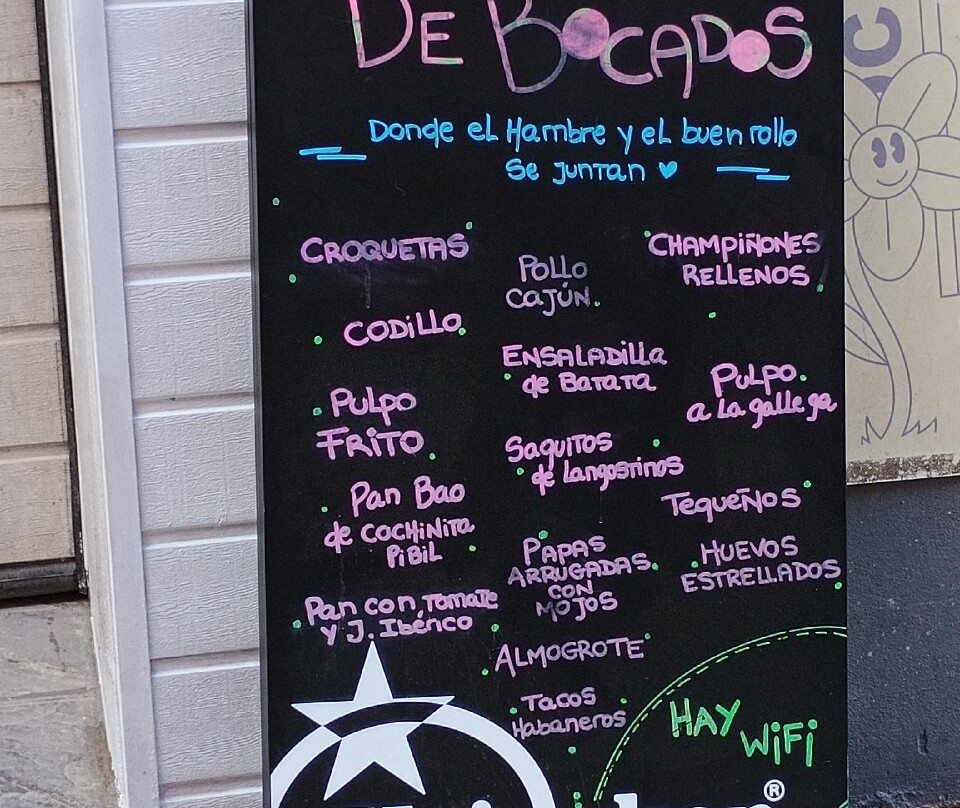 De Bocados
Donde el Hambre y el buen rollo
Se juntan
CROQUETAS
CODiLLO
Pulpo
FRiTO
Pan Bao
de COCHiNiTa
PiBiL
Pan con Tomate
y J. Ibérico
POLLO
CAJÚN
ENSALADiLLa
de Batata
Saquitos
de Langostinos
PAPAS
ARRUGADAS
CON
MOJOS
ALMOGROTE
Tacos
Habaneros
CHAMPIÑONES
RELLENOS
Pulpo
a La gallega
TEQUEÑOS
HUEVOS
ESTRELLADOS
HAY
WiFi
®